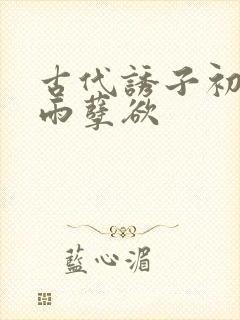 古代誘子初
雨孽欲
藍心湄